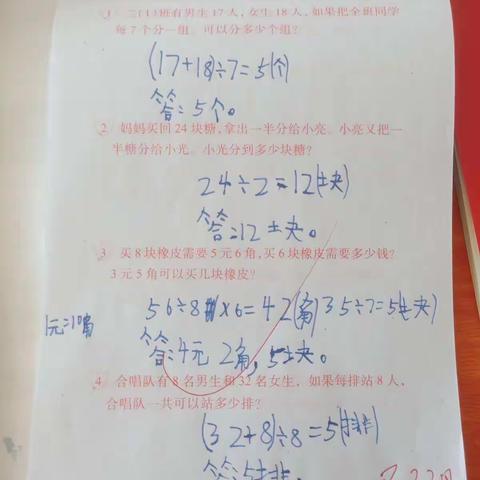 1、二(1)班有男生17人，女生18人，如果把全班同学
每7个分一组。可以分多少个组?
(17+18)÷7=5(个)
答:5个。
2、妈妈买回24块糖,拿出一半分给小亮。小亮又把一
半糖分给小光。小光分到多少块糖?
24÷2=12(块)
答:12块。
3、买8块橡皮需要5元6角,买6块橡皮需要多少钱?
3元5角可以买几块橡皮?
56÷8×6=42(角) 35÷7=5(块)
1元=10角
答:4元2角,5块。
4、合唱队有8名男生和32名女生，如果每排站8人，
合唱队一共可以站多少排?
(32+8)÷8=5(排)
答:5排。